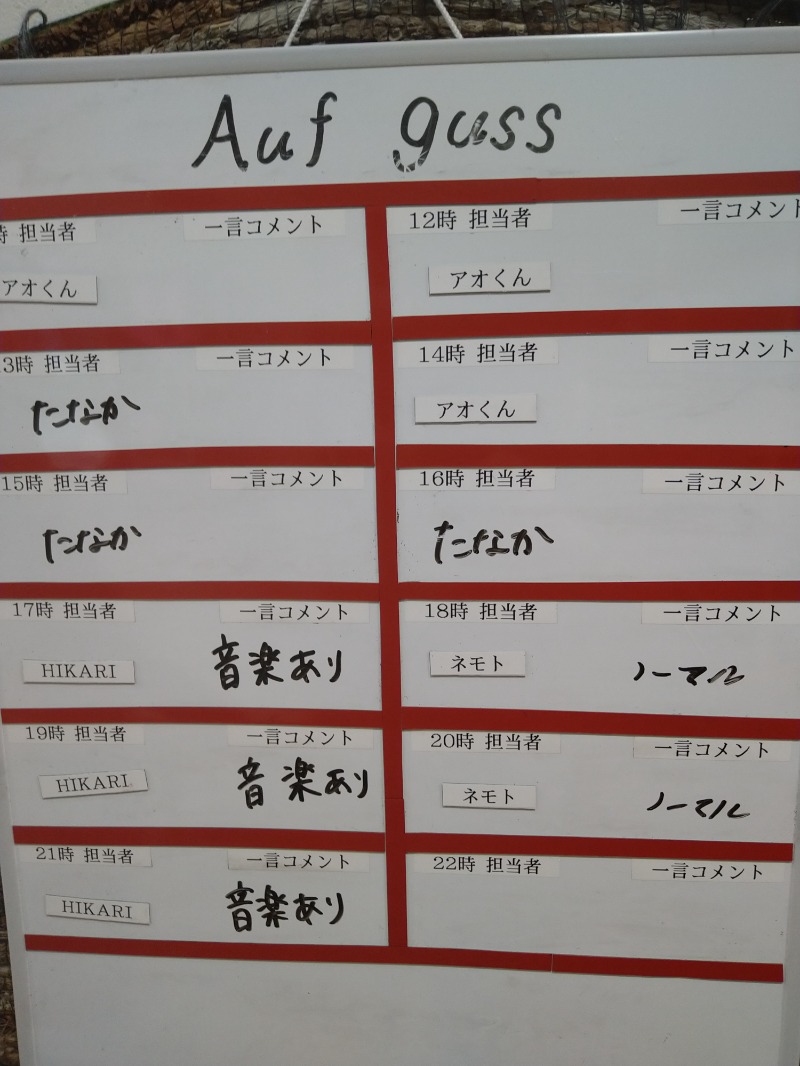 Auf guss
時 担当者 一言コメント
アオくん
12時 担当者 一言コメント
アオくん
3時 担当者 一言コメント
たなか
14時 担当者 一言コメント
アオくん
15時 担当者 一言コメント
たなか
16時 担当者 一言コメント
たなか
17時 担当者 一言コメント
HIKARI 音楽あり
18時 担当者 一言コメント
ネモト ノーマル
19時 担当者 一言コメント
HIKARI 音楽あり
20時 担当者 一言コメント
ネモト ノーマル
21時 担当者 一言コメント
HIKARI 音楽あり
22時 担当者 一言コメント